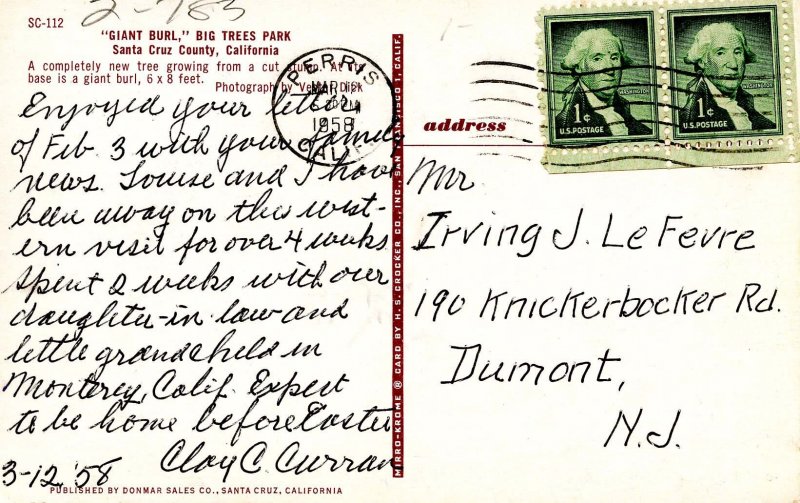 2-783
SC-112
"GIANT BURL," BIG TREES PARK
Santa Cruz County, California
A completely new tree growing from a cut stump. At its
base is a giant burl, 6 x 8 feet.
Photograph by Vester Dick
Enjoyed your letter
of Feb 3 with your family
news. Louise and I have
been away on this west-
ern visit for over 4 weeks
Spent 2 weeks with our
daughter-in law and
little grandchild in
Monterey, Calif. Expect
to be home before Easter
Clay C. Curran
3-12 '58
PUBLISHED BY DONMAR SALES CO., SANTA CRUZ, CALIFORNIA
MIRRO-KROME ® CARD BY H.S. CROCKER CO., INC., SAN FRANCISCO 1, CALIF.
PERRIS
MAR 12
PM
1958
CALIF.
1¢
WASHINGTON
U.S. POSTAGE
1¢
WASHINGTON
U.S. POSTAGE
address
Mr
Irving J. Le Fevre
190 Knickerbocker Rd.
Dumont,
N.J.